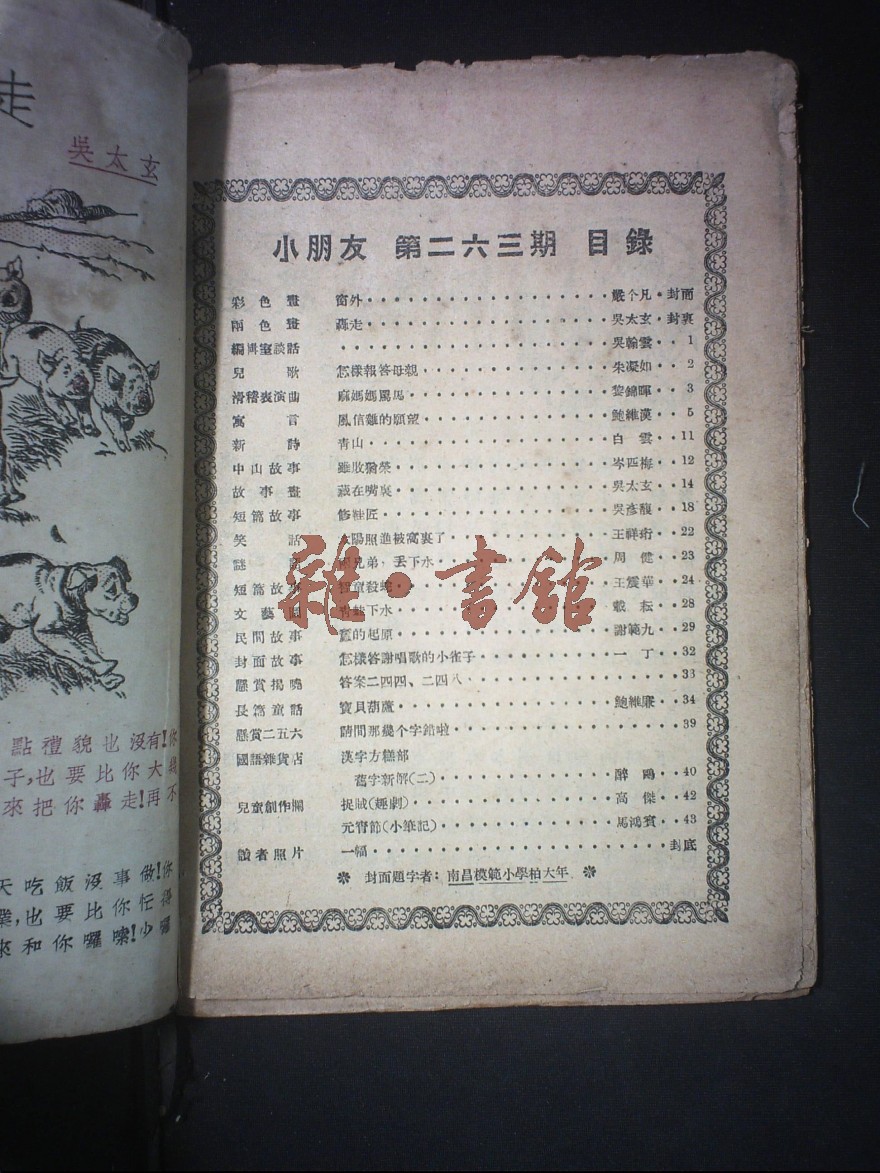 走
吳太玄
點禮貌也沒有!你
子,也要比你大
來把你轟走!再不
天吃飯沒事做!你
業,也要比你忙得
來和你囉嗦!少囉
小朋友 第二六三期 目錄
彩色畫 窗外 嚴个凡·封面
兩色畫 轟走 吳太玄·封裏
編輯室談話 吳翰雲 1
兒歌 怎樣報答母親 朱凝如 2
滑稽表演曲 麻媽媽罵馬 黎錦暉 3
寓言 風信雞的願望 鮑維漢 5
新詩 青山 白雲 11
中山故事 雖敗猶榮 岑匹梅 12
故事畫 藏在嘴裏 吳太玄 14
短篇故事 修鞋匠 吳彥馥 18
笑話 太陽照進被窩裏了 王祥珩 22
謎語 兄弟,丟下水 周健 23
短篇故事 智童殺蛇 王震華 24
文藝圖 下水 戴耘 28
民間故事 的起原 謝範九 29
封面故事 怎樣答謝唱歌的小雀子 一丁 32
懸賞揭曉 答案二四四、二四八 33
長篇童話 寶貝葫蘆 鮑維 34
懸賞二五六 請問那幾个字錯啦 39
國語雜貨店 漢字方糕部
舊字新解(二) 醉鷗 40
兒童創作欄 捉賊(趣劇) 高傑 42
元宵節(小筆記) 馬鴻賓 43
讀者照片 一幅 封底
封面題字者:南昌模範小學柏大年
雜·書館